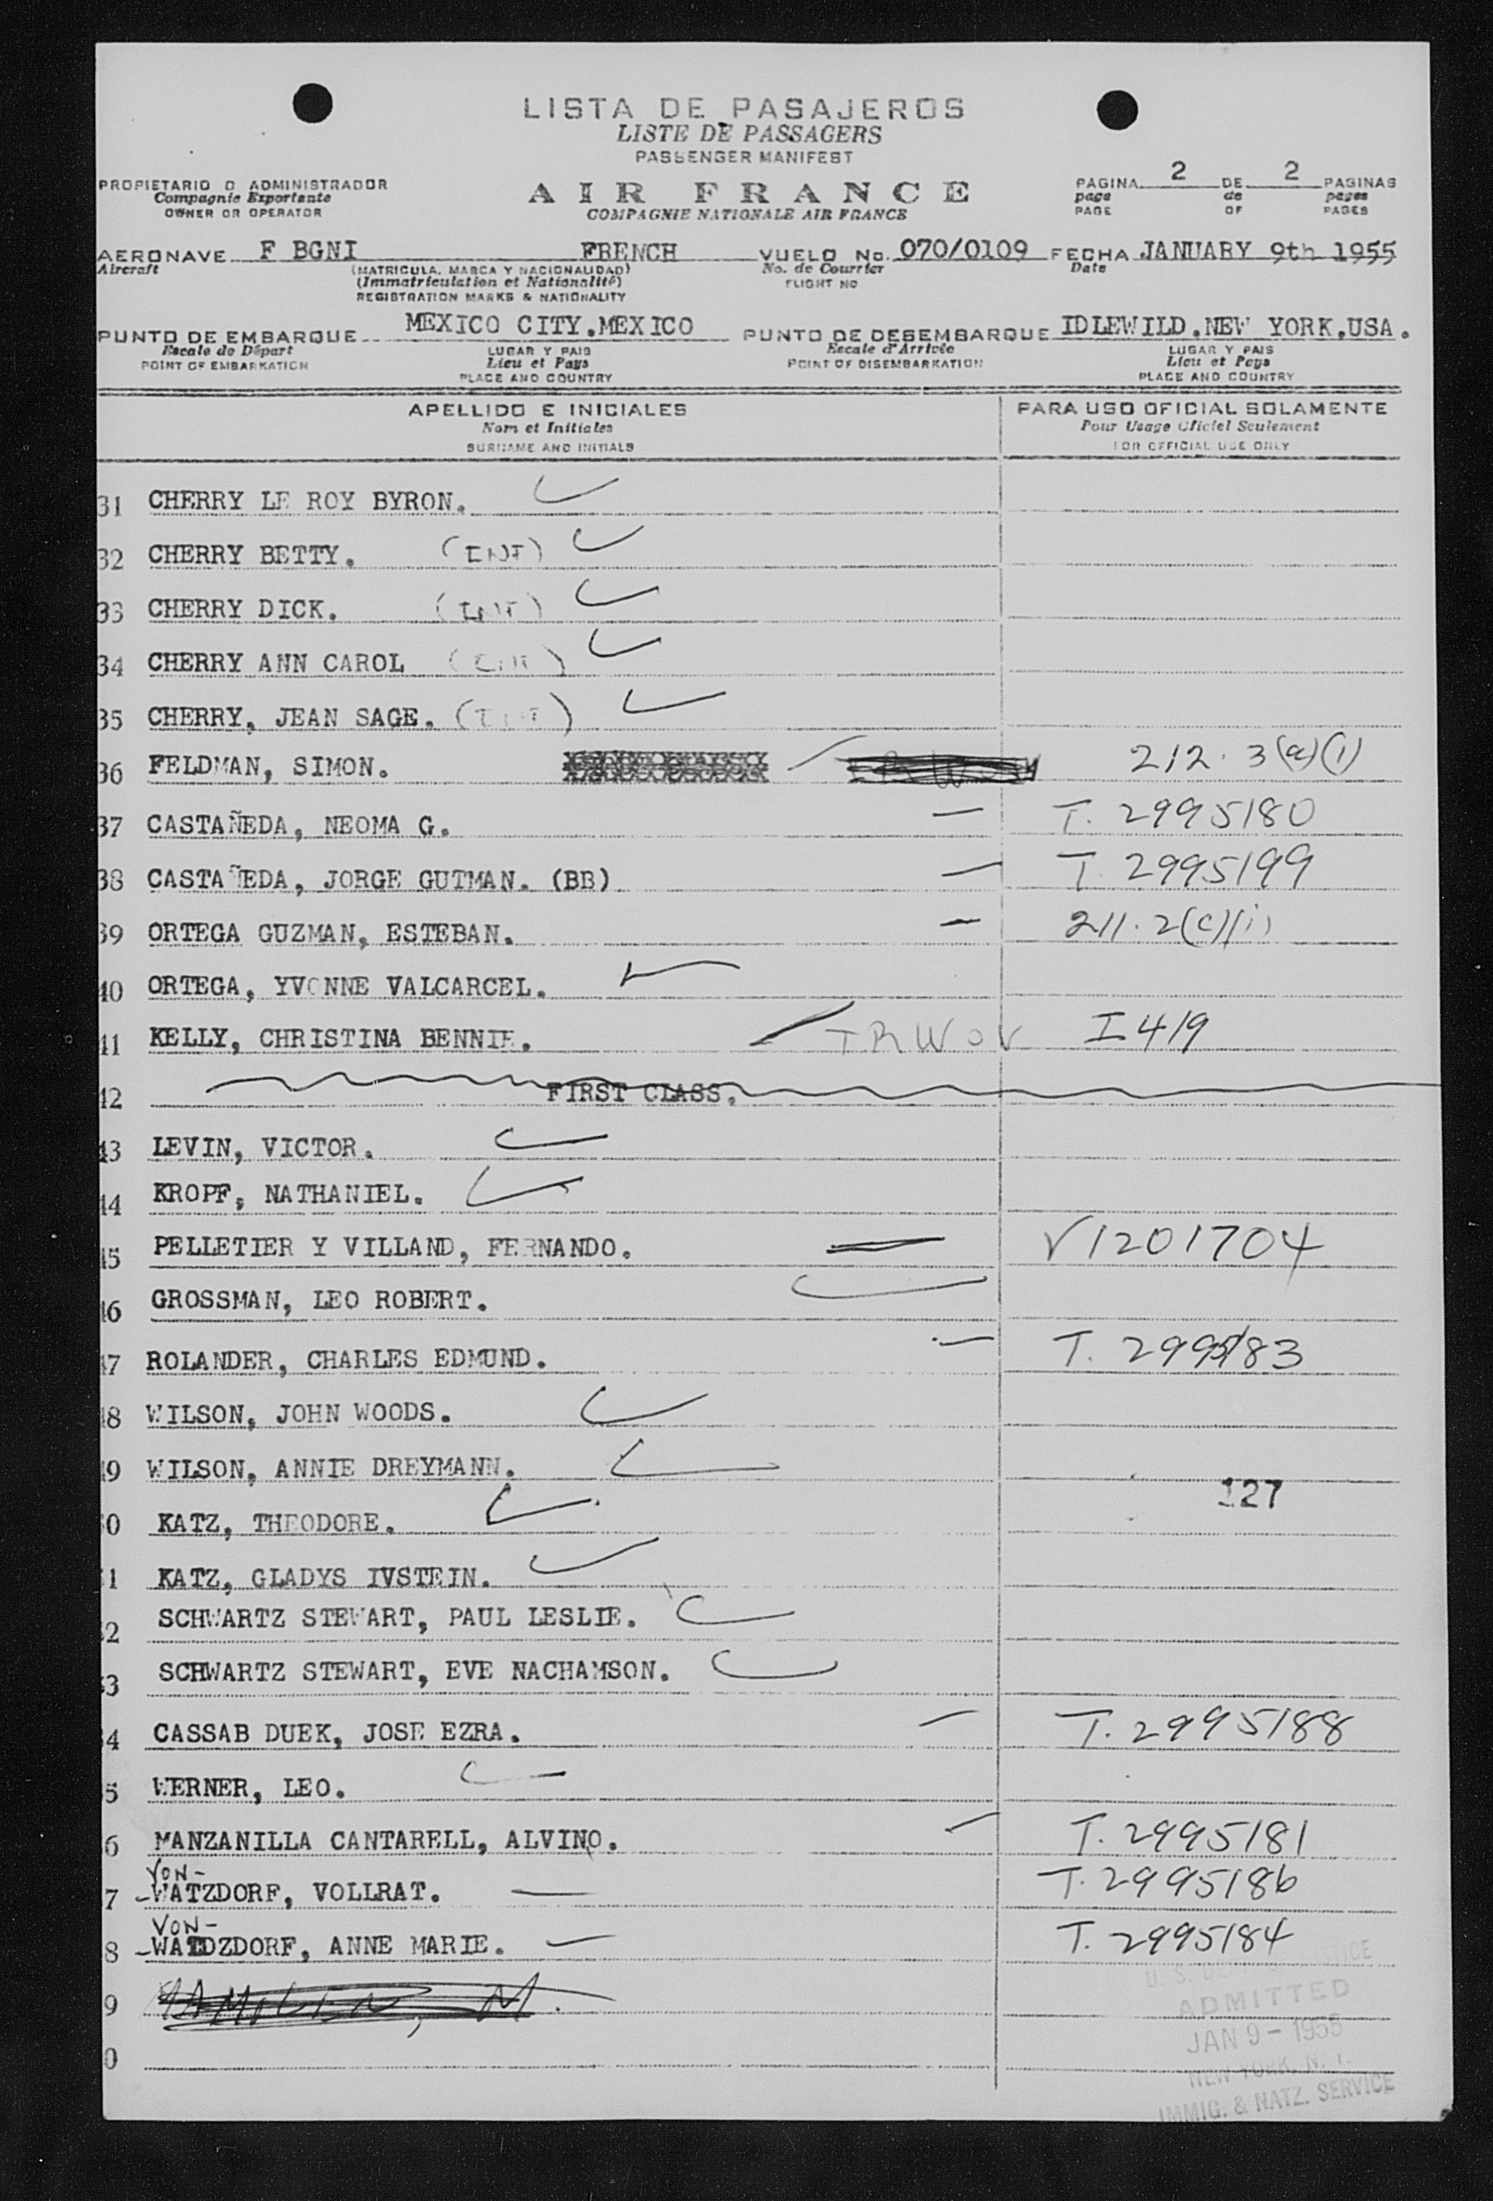 LISTA DE PASAJEROS
LISTE DE PASSAGERS
PASSENGER MANIFEST
PROPIETARIO O ADMINISTRADOR
Compagnie Exportante
OWNER OR OPERATOR
AIR FRANCE
COMPAGNIE NATIONALE AIR FRANCE
PAGINA 2 DE 2 PAGINAS
page de pages
PAGE OF PAGES
AERONAVE F BGNI FRENCH VUELO No. 070/0109 FECHA JANUARY 9th 1955
Aircraft (MATRICULA, MARCA Y NACIONALIDAD) No. de Courrier Date
(Immatriculation et Nationalité) FLIGHT NO
REGISTRATION MARKS & NATIONALITY
PUNTO DE EMBARQUE MEXICO CITY.MEXICO PUNTO DE DESEMBARQUE IDLEWILD.NEW YORK.USA.
Escale de Départ LUGAR Y PAIS Escale d'Arrivée LUGAR Y PAIS
POINT OF EMBARKATION Lieu et Pays POINT OF DISEMBARKATION Lieu et Pays
PLACE AND COUNTRY PLACE AND COUNTRY
APELLIDO E INICIALES PARA USO OFICIAL SOLAMENTE
Nom et Initiales Pour Usage Officiel Seulement
SURNAME AND INITIALS FOR OFFICIAL USE ONLY
31 CHERRY LE ROY BYRON.
32 CHERRY BETTY. (INT)
33 CHERRY DICK. (INT)
34 CHERRY ANN CAROL (INT)
35 CHERRY, JEAN SAGE. (INT)
36 FELDMAN, SIMON. 212.3(a)(1)
37 CASTAÑEDA, NEOMA G. T. 2995180
38 CASTAÑEDA, JORGE GUTMAN. (BB) T. 2995199
39 ORTEGA GUZMAN, ESTEBAN. 211.2(c)(i)
40 ORTEGA, YVONNE VALCARCEL.
41 KELLY, CHRISTINA BENNIE. TRWOV I419
42 FIRST CLASS.
43 LEVIN, VICTOR.
44 KROPF, NATHANIEL.
45 PELLETIER Y VILLAND, FERNANDO. V1201704
46 GROSSMAN, LEO ROBERT.
47 ROLANDER, CHARLES EDMUND. T. 2995183
48 WILSON, JOHN WOODS.
49 WILSON, ANNIE DREYMANN.
127
0 KATZ, THEODORE.
1 KATZ, GLADYS IVSTEIN.
2 SCHWARTZ STEWART, PAUL LESLIE.
3 SCHWARTZ STEWART, EVE NACHAMSON.
4 CASSAB DUEK, JOSE EZRA. T. 2995188
5 WERNER, LEO.
6 MANZANILLA CANTARELL, ALVINO. T. 2995181
VON-
7 WATZDORF, VOLLRAT. T. 2995186
VON-
8 WATDZDORF, ANNE MARIE. T. 2995184
9
0
ADMITTED
JAN 9 - 1955
NEW YORK, N. Y.
IMMIG. & NATZ. SERVICE